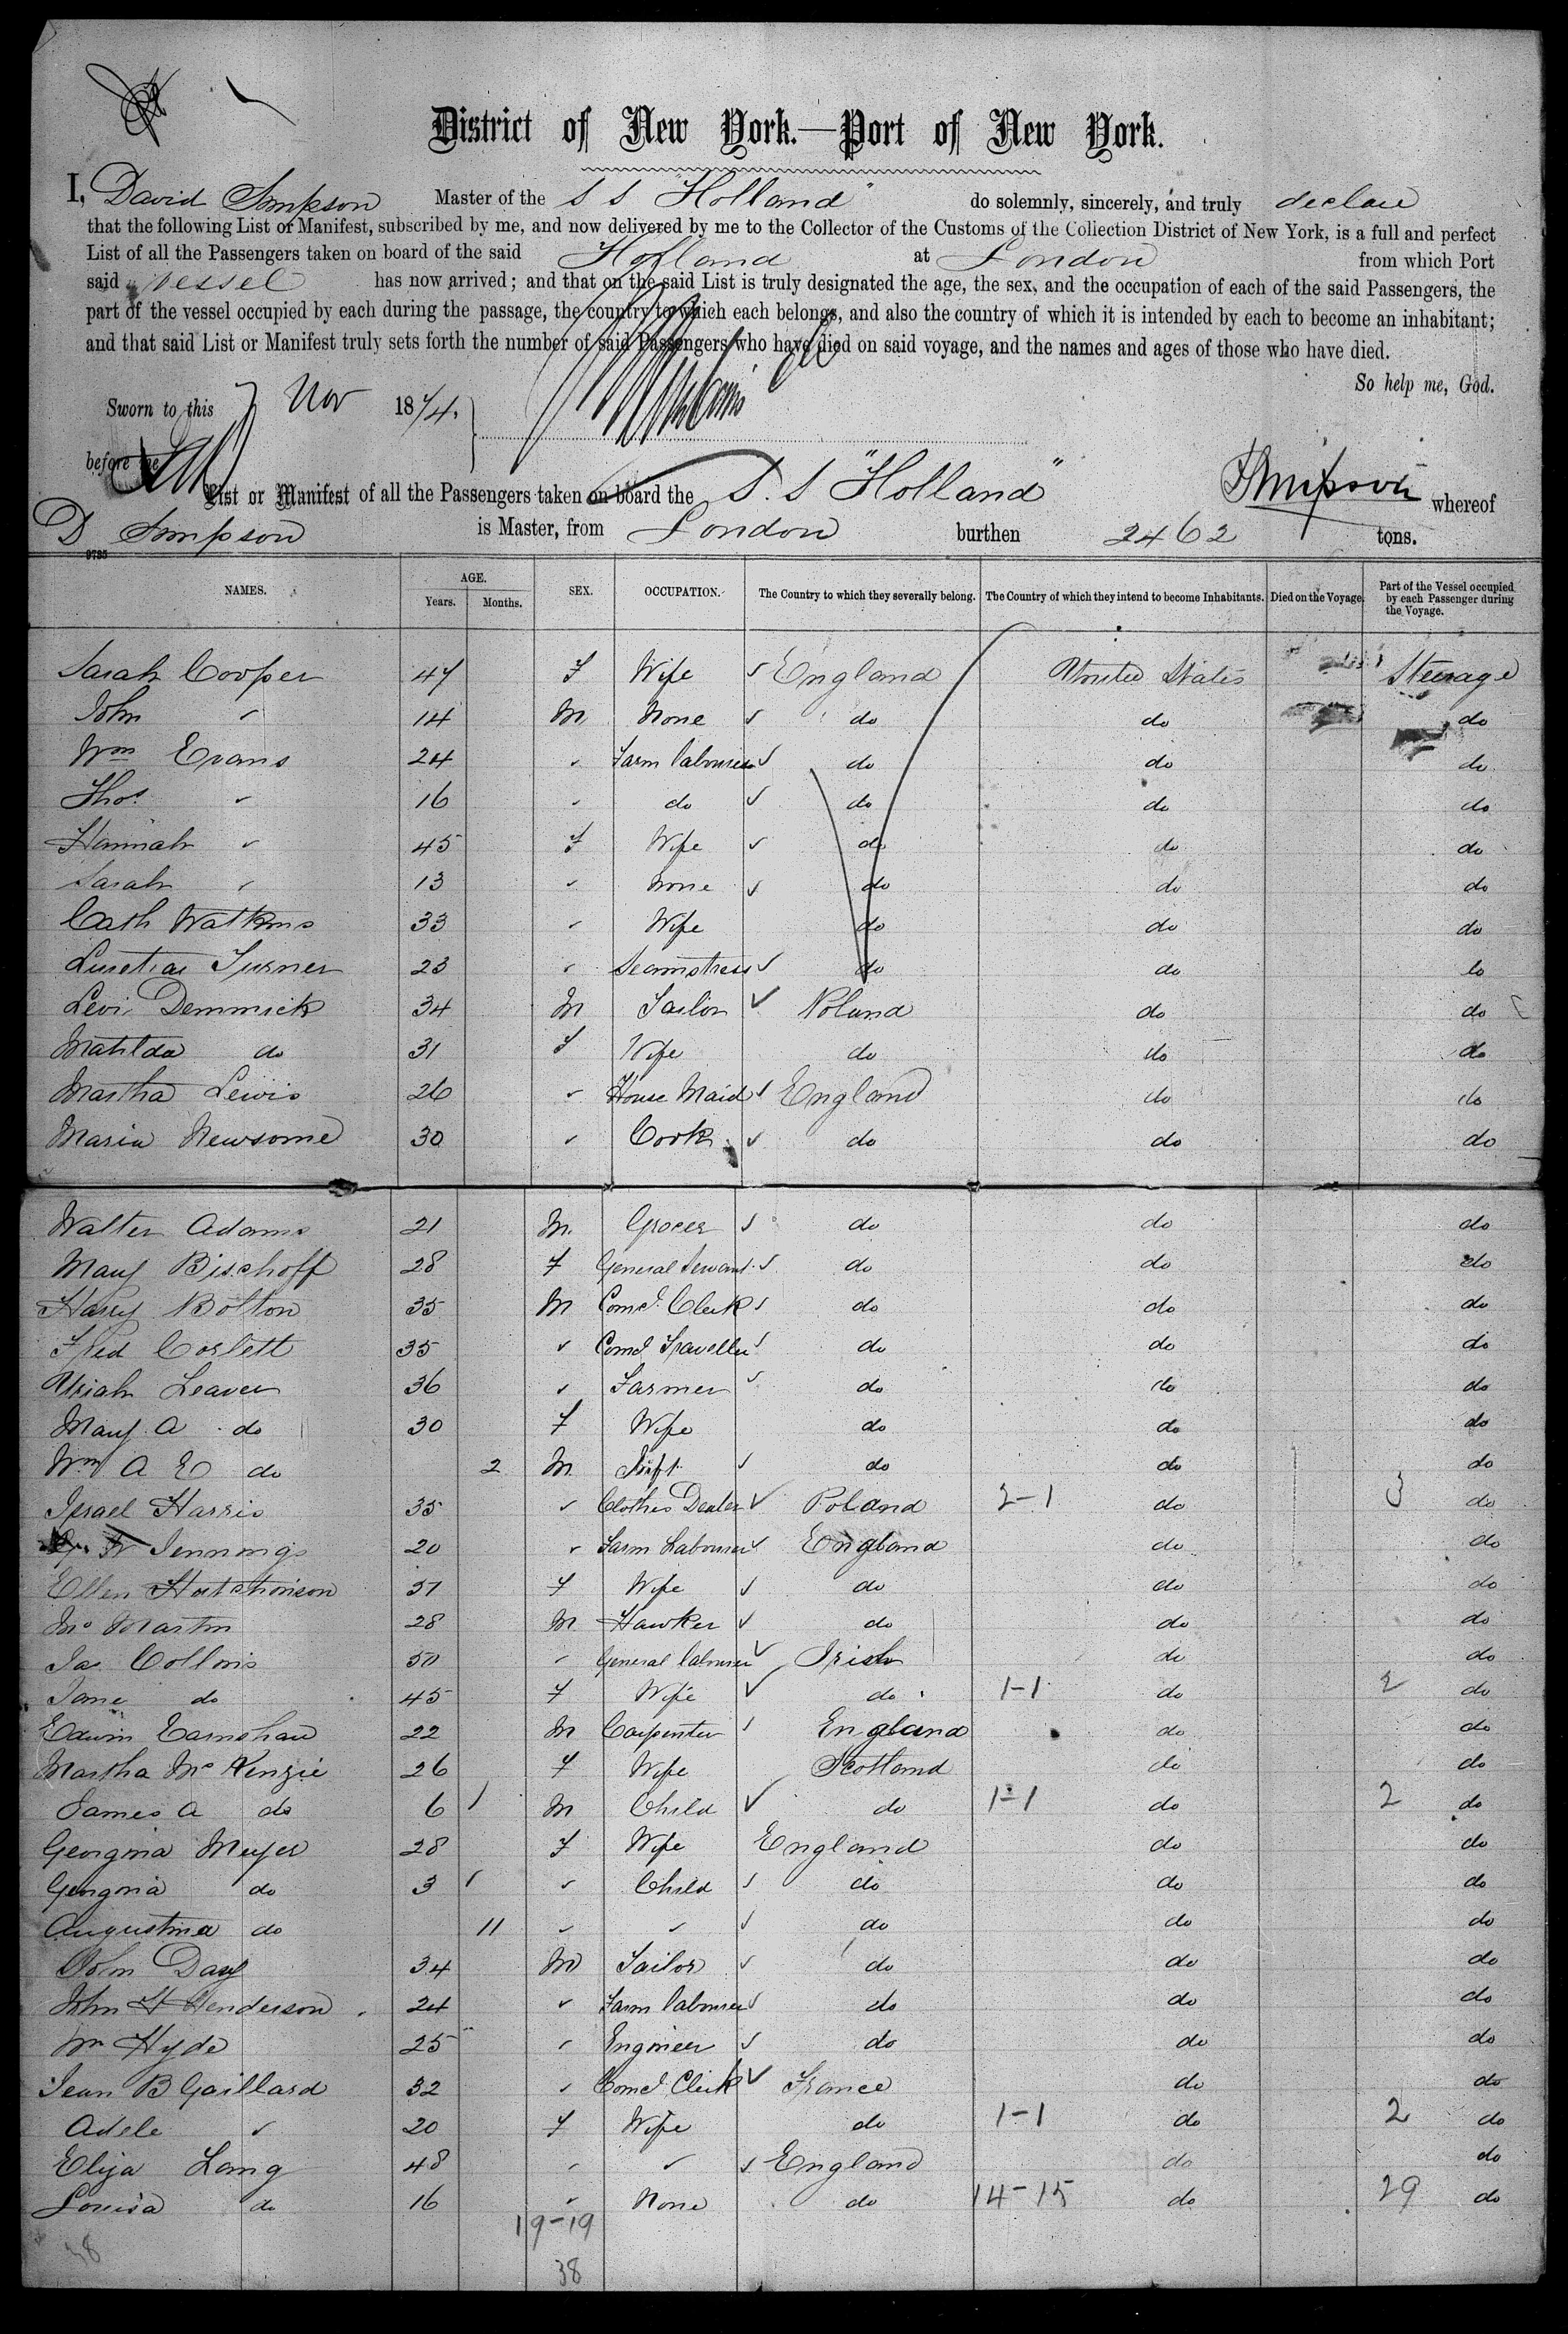 District of New York.—Port of New York.
I, David Simpson Master of the S S "Holland" do solemnly, sincerely, and truly declare
that the following List or Manifest, subscribed by me, and now delivered by me to the Collector of the Customs of the Collection District of New York, is a full and perfect
List of all the Passengers taken on board of the said Holland at London from which Port
said vessel has now arrived; and that on the said List is truly designated the age, the sex, and the occupation of each of the said Passengers, the
part of the vessel occupied by each during the passage, the country to which each belongs, and also the country of which it is intended by each to become an inhabitant;
and that said List or Manifest truly sets forth the number of said Passengers who have died on said voyage, and the names and ages of those who have died.
So help me, God.
Sworn to this 7 Nov 1874.
before me
List or Manifest of all the Passengers taken on board the S. S "Holland" DSimpson whereof
D Simpson is Master, from London burthen 2462 tons.
9795
NAMES. AGE. Years. Months. SEX. OCCUPATION. The Country to which they severally belong. The Country of which they intend to become Inhabitants. Died on the Voyage. Part of the Vessel occupied by each Passenger during the Voyage.
Sarah Cooper 47 F Wife England United States Steerage
John " 14 M None do do do
Wm Evans 24 " Farm labourer do do do
Thos " 16 " do do do do
Hannah " 45 F Wife do do do
Sarah " 13 " None do do do
Cath Watkins 33 " Wife do do do
Lucretia Turner 23 " Seamstress do do do
Levi Demmick 34 M Tailor Poland do do
Matilda do 31 F Wife do do do
Martha Lewis 26 " House Maid England do do
Maria Newsome 30 " Cook do do do
Walter Adams 21 M. Grocer do do do
Mary Bischoff 28 F General Servant do do do
Harry Bolton 35 M Comcl Clerk do do do
Fred Corlett 35 " Comcl Traveller do do do
Uriah Leaver 36 " Farmer do do do
Mary A do 30 F Wife do do do
Wm A E do 2 M Inft do do do
Israel Harris 35 " Clothes Dealer Poland 2-1 do 3 do
W Jennings 20 " Farm Labourer England do do
Ellen Hutchinson 37 F Wife do do do
Martin 28 M Hawker do do do
Jas Collins 50 " General labourer Irish do do
Jane do 45 F Wife do 1-1 do 2 do
Edwin Earnshaw 22 M Carpenter England do do
Martha McKenzie 26 F Wife Scotland do do
James A do 6 M Child do 1-1 do 2 do
Georgina Meyer 28 F Wife England do do
Georgina do 3 " Child do do do
Augustina do 11 " " do do do
John Day 34 M Tailor do do do
John H Henderson 24 " Farm labourer do do do
Wm Hyde 25 " Engineer do do do
Jean B Gaillard 32 " Comcl Clerk France do do
Adele " 20 F Wife do 1-1 do 2 do
Eliza Lang 48 " " England do do
Louisa do 16 " None do 14-15 do 29 do
19-19
38 38